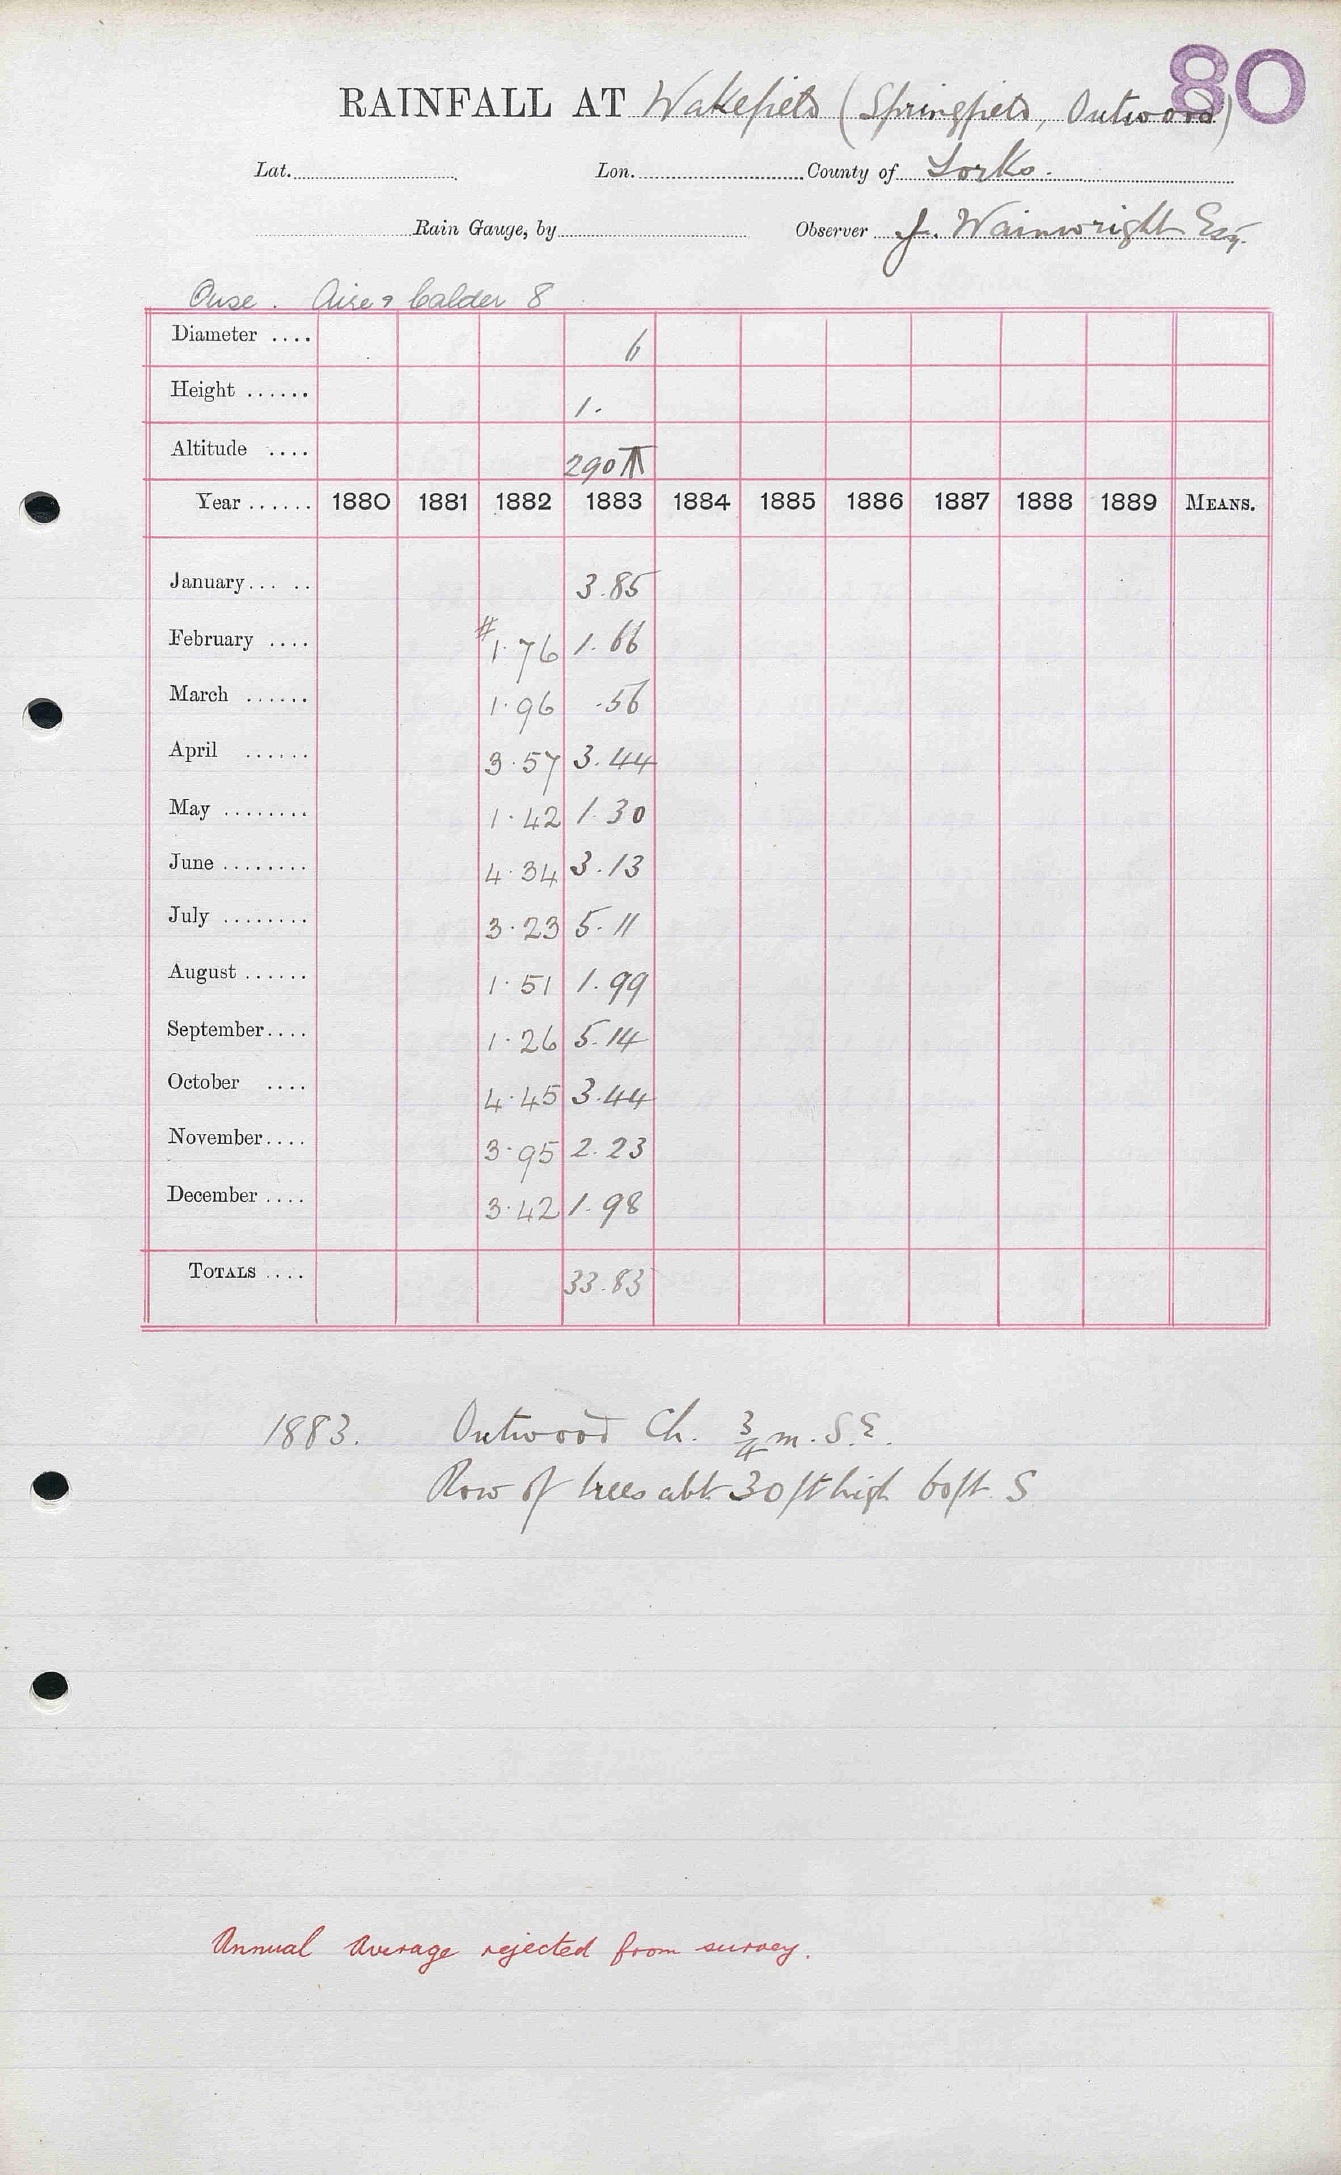 80
RAINFALL AT Wakefield (Springfield, Outwood)
Lat. Lon. County of Yorks.
Rain Gauge, by Observer J. Wainwright Esq.
Ouse. Aire & Calder 8
Diameter .... 6
Height ...... 1.
Altitude .... 290 T
Year ...... 1880 1881 1882 1883 1884 1885 1886 1887 1888 1889 MEANS.
January... .. 3.85
February .... # 1.76 1.66
March ...... 1.96 .56
April ...... 3.57 3.44
May ........ 1.42 1.30
June ........ 4.34 3.13
July ........ 3.23 5.11
August ...... 1.51 1.99
September.... 1.26 5.14
October .... 4.45 3.44
November.... 3.95 2.23
December .... 3.42 1.98
TOTALS .... 33.83
1883. Outwood Ch. 3/4 m. S.E.
Row of trees abt. 30 ft high 60 ft. S
Annual Average rejected from survey.